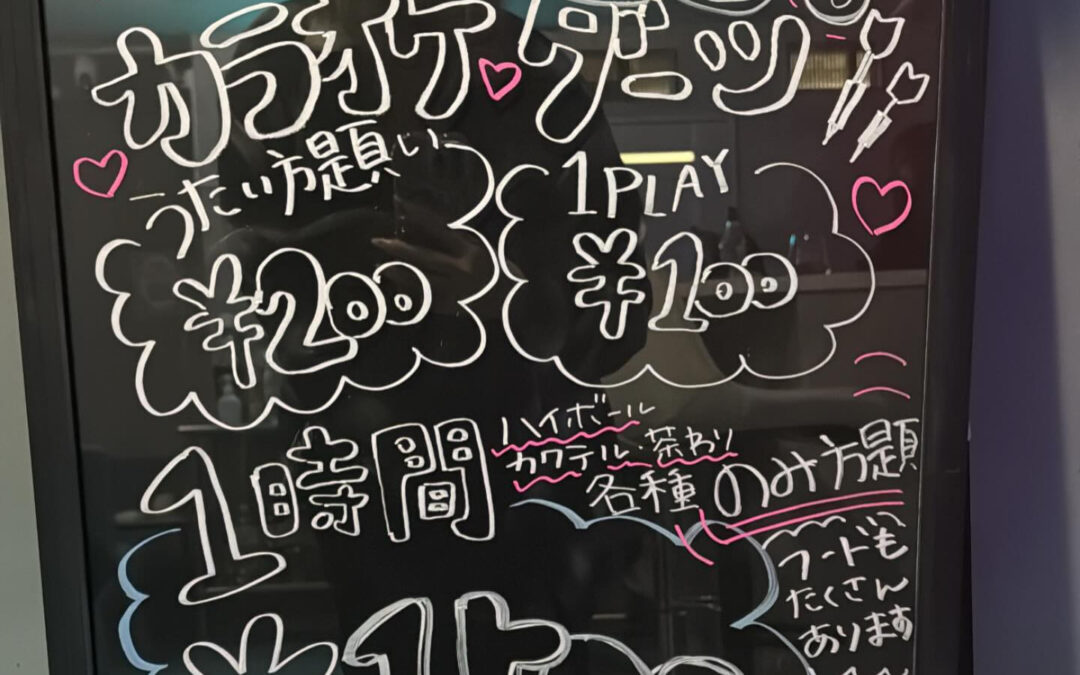 カラオケ♡ダーツ
うたい方題い
¥200
1PLAY
¥100
1時間
ハイボール
カクテル・茶わり
各種のみ方題
フードも
たくさん
あります